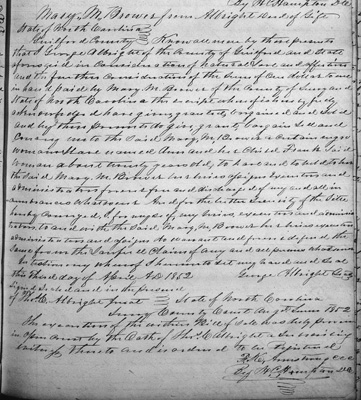 By H C Hampton D.C.
Mary M Brower from Albright Deed of Gift
State of North Carolina
Guilford County Know all men by these presents
that I George Albright of the County of Guilford and State
aforesaid in Consideration of Natural Love and affection
and the further Consideration of the Sum of One dollar to me
in hand paid by Mary M Brower of the County of Surry and
State of North Carolina the receipt whereof is hereby fully
acknowledged have given granted bargained and Sold
and by these presents do give, grant, bargain Sell and
Convey unto the Said Mary M Brower a Certain negro
woman Slave named Ann and her Child Frank Said
woman about twenty years old, To have and to hold to her
the Said Mary M Brower her heirs assigns executors and
administrators forever free and discharged of my and all in
cumbrances Whatsoever And for the better Security of the title
hereby Conveyed, I for myself my heirs executors and adminis
trators, to and with the Said Mary M Brower her heirs executors
administrators and assigns to Warrant and forever defend the
Same from the Lawful Claims of any and all persons whatsoever
In testimony whereof I hereunto Set my hand and Seal
this third day of April AD 1852 George Albright Seal
Signed Sealed and in the presence
of Thos C Albright State of North Carolina
Surry County Court Augt Term 1852
The execution of the within Bill of Sale was duly proven
in open Court by the Oath of Thos C Albright the subscribing
witness thereto and is ordered to be Registered
F. K. Armstrong C.C.C.
By H C Hampton D.C.